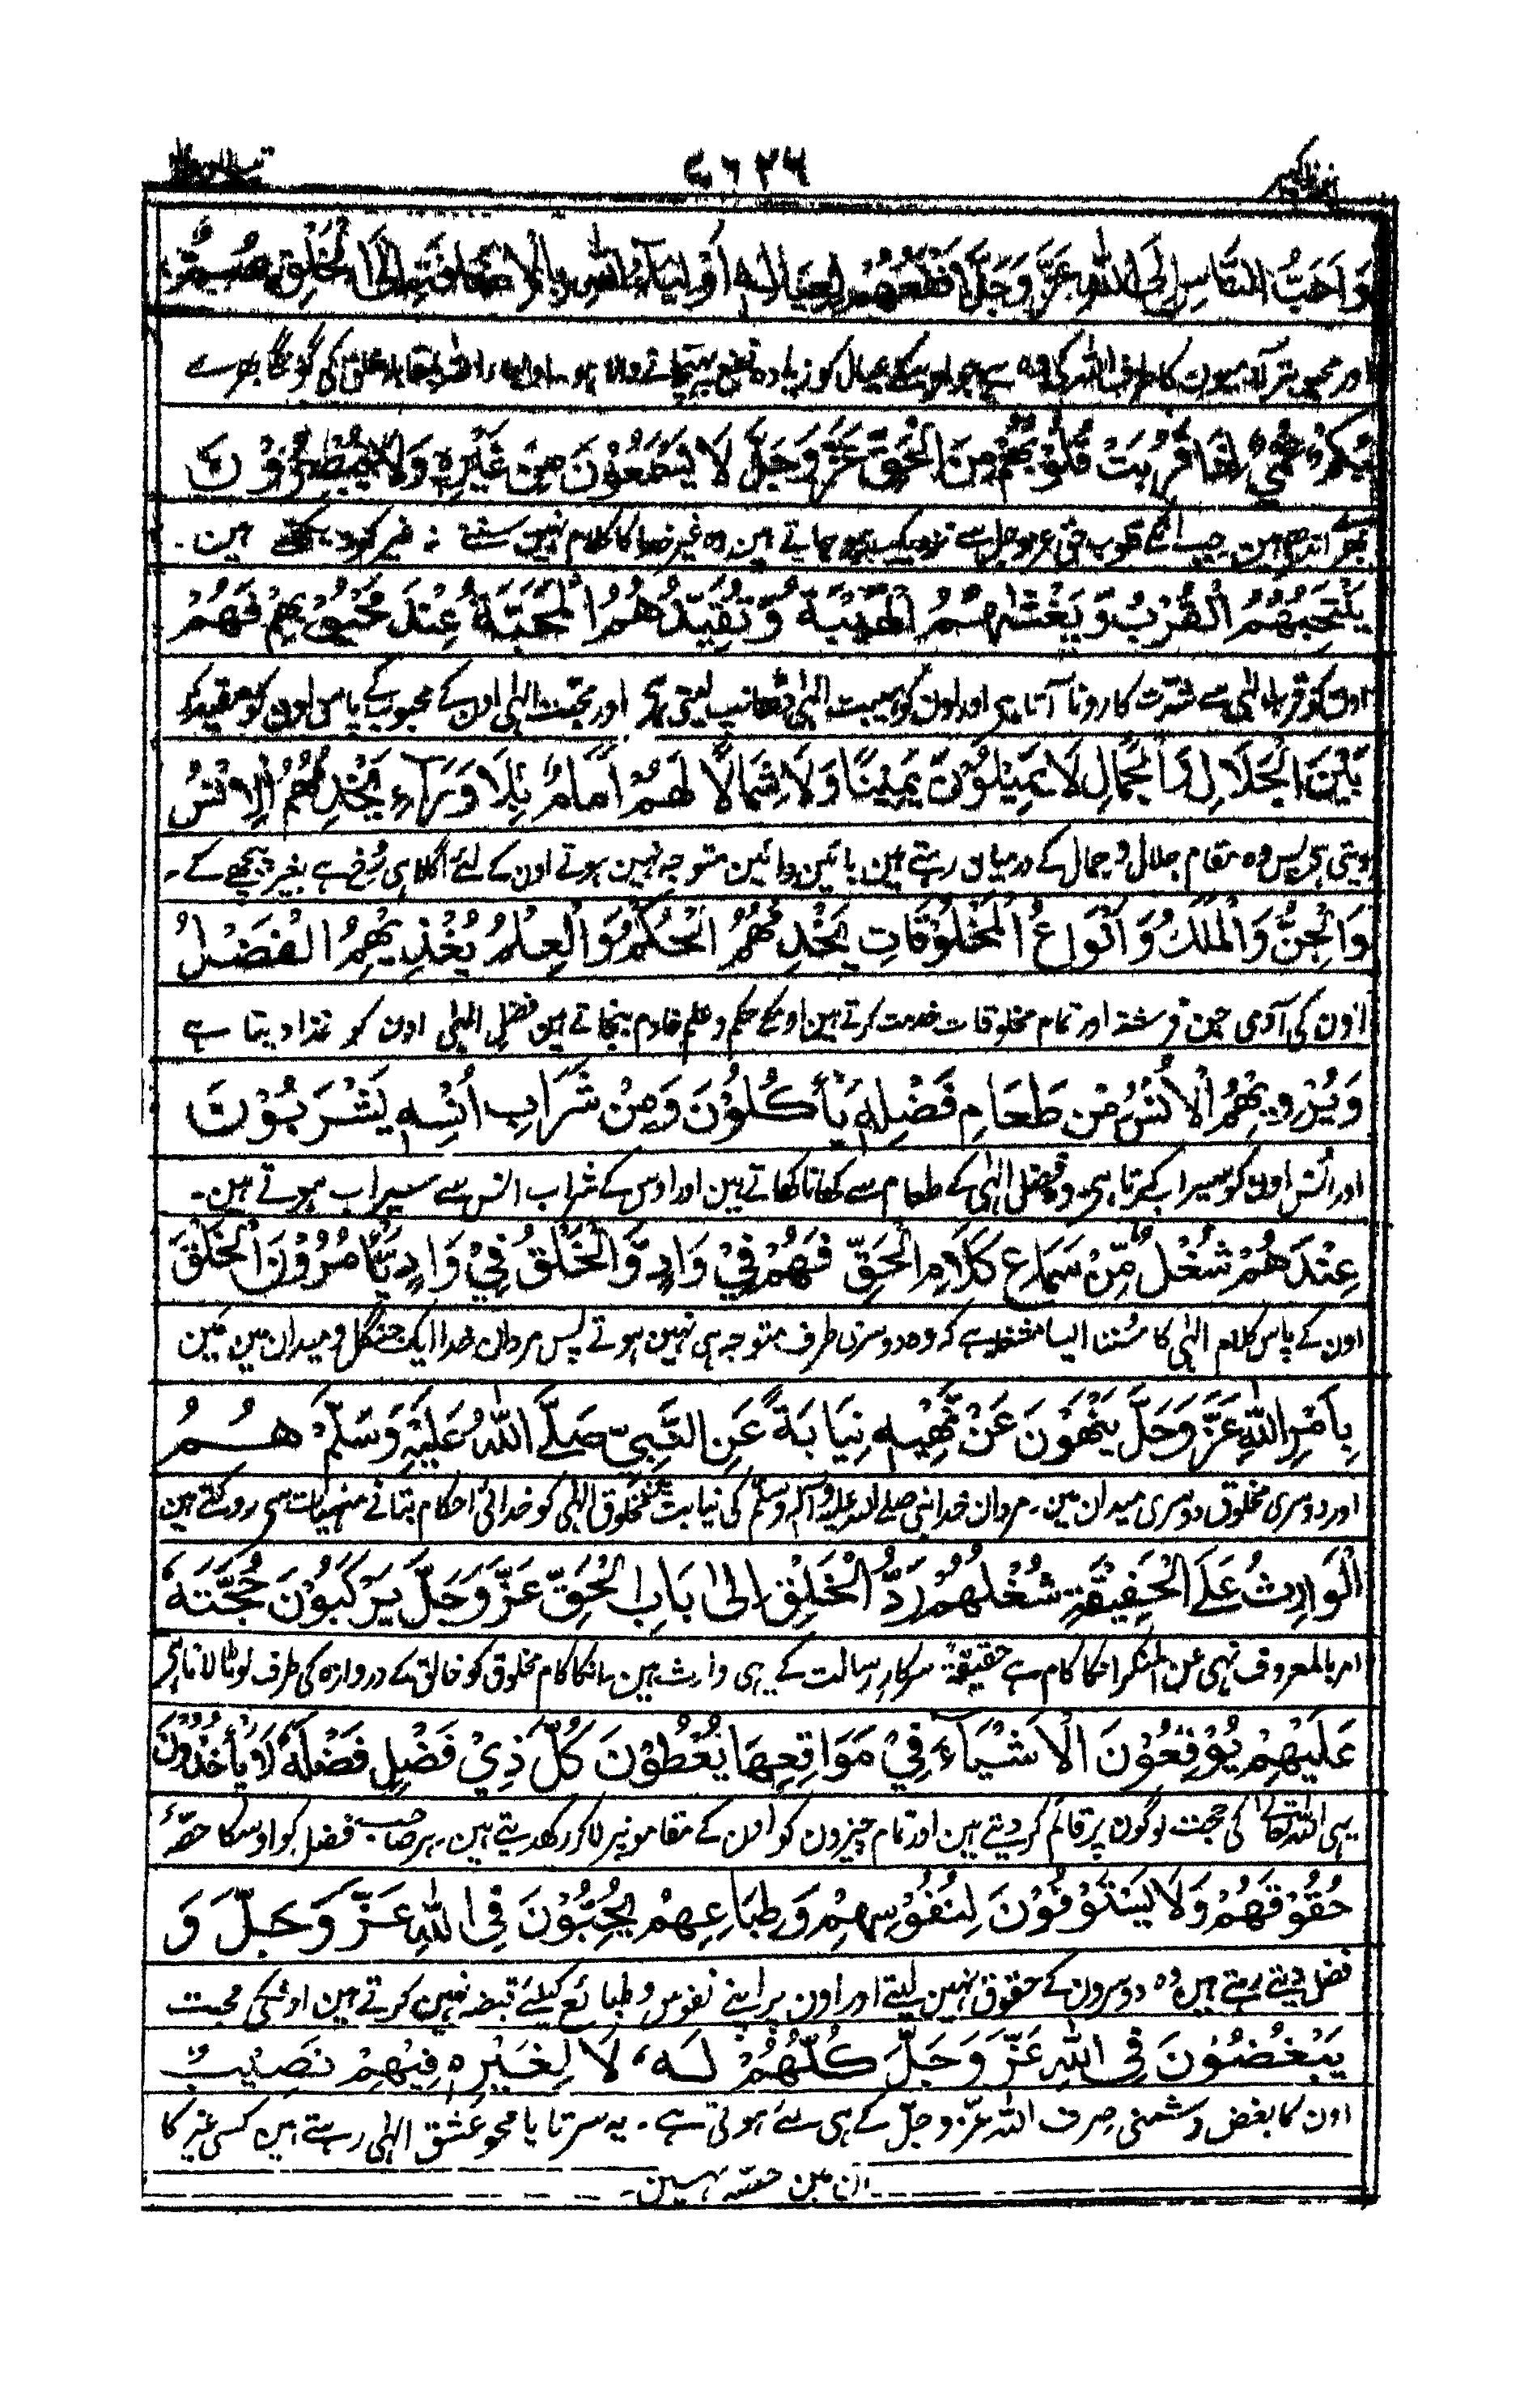 وَاَحَبُّ النَّاسِ اِلَی اللّٰهِ عَزَّ وَجَلَّ اَنْفَعُهُمْ لِعِیَالِهٖ اَوْلِیَآءُ اللّٰهِ بِالْاِضَافَةِ اِلَی الْخَلْقِ صُمٌّ
اور محبوب تر آدمیون کا طرف اللہ کی وہ ہے جو اوسکے عیال کو زیادہ نفع پہنچانے والا ہو۔ اولیاء اللہ بمقابلہ خلق کی گونگا بہرے
بُكْمٌ عُمْيٌ اِذَا قَرُبَتْ قُلُوْبُهُمْ مِنَ الْحَقِّ عَزَّ وَجَلَّ لَا یَسْمَعُوْنَ مِنْ غَیْرِهٖ وَلَا یُبْصِرُوْنَ
اندھے ہین جب انکے قلوب حق عز وجل سے نزدیک ہو جاتے ہین وہ غیر خدا کا کلام نہین سنتے نہ غیر کو دیکھتے ہین۔
یَلْتَحِبُهُمُ الْقُرْبُ وَیَغْشٰهُمُ الْهَیْبَةُ وَتُقَیِّدُهُمُ الْمَحَبَّةُ عِنْدَ مَحْبُوْبِهِمْ فَهُمْ
اون کو قرب الٰہی سے شدت کا رونا آتا ہے اور اون کو ہیبت الٰہی ڈھانپ لیتی ہے اور محبت الٰہی اون کے محبوب کے پاس اون کو مقید کر
بَیْنَ الْجَلَالِ وَالْجَمَالِ لَا یَمِیْلُوْنَ یَمِیْنًا وَلَا شِمَالًا لَهُمْ اَمَامٌ بِلَا وَرَآءٍ یَخْدِمُهُمُ الْاِنْسُ
دیتی ہے پس وہ مقام جلال و جمال کے درمیان رہتے ہین بائین دائین متوجہ نہین ہوتے اون کے لئے اگلا ہی رُخ ہے بغیر پیچھے کے۔
وَالْجِنُّ وَالْمَلَكُ وَاَنْوَاعُ الْمَخْلُوْقَاتِ یَخْدِمُهُمُ الْحُكْمُ وَالْعِلْمُ یُغْذِیْهِمُ الْفَضْلُ
اون کی آدمی جن فرشتہ اور تمام مخلوقات خدمت کرتے ہین اونکے حکم و علم خادم بنجاتے ہین فضل الٰہی اون کو غذا دیتا ہے
وَیُرْوِیْهِمُ الْاُنْسُ مِنْ طَعَامِ فَضْلِهٖ یَأْكُلُوْنَ وَمِنْ شَرَابِ اُنْسِهٖ یَشْرَبُوْنَ
اور انس اون کو سیراب کرتا ہے وہ فضل الٰہی کے طعام سے کھانا کھاتے ہین اور اوس کے شراب انس سے سیراب ہوتے ہین۔
عِنْدَهُمْ شُغْلٌ مِّنْ سَمَاعِ كَلَامِ الْحَقِّ فَهُمْ فِیْ وَادٍ وَّالْخَلْقُ فِیْ وَادٍ یَّأْمُرُوْنَ الْخَلْقَ
اون کے پاس کلام الٰہی کا سُننا ایسا مشغلہ ہے کہ وہ دوسری طرف متوجہ ہی نہین ہوتے پس مردان خدا ایک جنگل و میدان مین ہین
بِاَمْرِ اللّٰهِ عَزَّ وَجَلَّ یَنْهَوْنَ عَنْ نَّهْیِهٖ نِیَابَةً عَنِ النَّبِیِّ صَلَّے اللّٰهُ عَلَیْهِ وَسَلَّمَ هُمُ
اور دوسری مخلوق دوسری میدان مین۔ مردان خدا نبی صلے اللہ علیہ وآلہ وسلم کی نیابت مین مخلوق الٰہی کو خدائی احکام بتاتے منہیات سے روکتے ہین
الْوَارِثُ عَلَے الْحَقِیْقَةِ شُغْلُهُمْ رَدُّ الْخَلْقِ اِلٰی بَابِ الْحَقِّ عَزَّ وَجَلَّ یَرْكَبُوْنَ حُجَّتَهٗ
امر بالمعروف نہی عن المنکر انکا کام ہے حقیقۃً سرکار رسالت کے یہی وارث ہین۔ انکا کام مخلوق کو خالق کے دروازہ کی طرف لوٹا لانا ہے
عَلَیْهِمْ یُوْقِعُوْنَ الْاَشْیَآءَ فِیْ مَوَاقِعِهَا یُعْطُوْنَ كُلَّ ذِیْ فَضْلٍ فَضْلَهٗ لَا یَأْخُذُوْنَ
یہی اللہ تعالٰے کی حجت لوگون پر قائم کر دیتے ہین اور تمام چیزون کو اون کے مقامونپر لا کر رکھدیتے ہین۔ ہر صاحب فضل کو اوسکا حصّہ
حُقُوْقَهُمْ وَلَا یَسْتَوْفُوْنَ لِنُفُوْسِهِمْ وَطِبَاعِهِمْ یُحِبُّوْنَ فِی اللّٰهِ عَزَّ وَجَلَّ وَ
فضل دیتے رہتے ہین وہ دوسرون کے حقوق نہین لیتے اور اون پر اپنے نفوس و طبائع کیلئے قبضہ نہین کرتے ہین اونکی محبت
یَبْغُضُوْنَ فِی اللّٰهِ عَزَّ وَجَلَّ كُلُّهُمْ لَهٗ لَا لِغَیْرِهٖ فِیْهِمْ نَصِیْبٌ
اون کا بغض و دشمنی صرف اللہ عزّ وجلّ کے ہی لئے ہوتی ہے۔ یہ سرتا پا محو عشق الٰہی رہتے ہین کسی غیر کا
ان مین حصّہ نہین۔